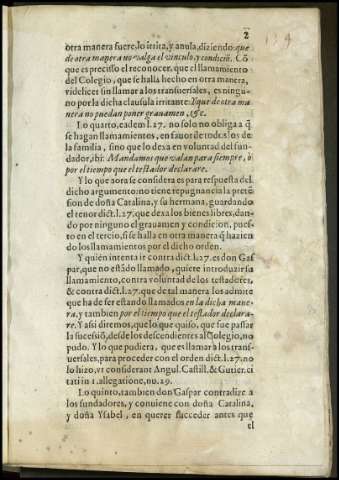 2
otra manera fuere, lo irrita, y anula, diziendo que
de otra manera no valga el vinculo, y condiciõ. Cõ
que es precisso el reconocer, que el llamamiento
del Colegio, que se halla hecho en otra manera,
videlicet sin llamar a los transuersales, es ningu-
no por la dicha clausula irritante: Y que de otra ma
nera no puedan poner grauamen, &c.
Lo quarto, ea dem l. 27. no solo no obliga a q̃
se hagan llamamientos, en fauor de todos los de
la familia, sino que lo dexa en voluntad del fun-
dador, ibi: Mandamos que valan para siempre, ò
por el tiempo que el testador declarare.
Y lo que aora se considera es para respuesta del
dicho argumento: no tiene repugnancia la pretẽ
sion de doña Catalina, y su hermana, guardando
el tenor dict. l. 27. que dexa los bienes libres, dan-
do por ninguno el grauamen y condicion, pues-
to en el tercio, si se halla en otra manera q̃ hazien
do los llamamientos por el dicho orden.
Y quien intenta ir contra dict. l. 27. es don Gas
par, que no estãdo llamado, quiere introduzir su
llamamiento, contra voluntad de los testadores,
& contra dict. l. 27. que de tal manera los admite
que ha de ser estando llamados en la dicha mane-
ra, y tambien por el tiempo que el testador declara-
re. Y assi diremos, que lo que quiso, que fue passar
la sucesiõ, desde los descendientes al Colegio, no
pudo. Y lo que pudiera, que es llamar a los trans-
uersales, para proceder con el orden dict. l. 27. no
lo hizo, vt considerant Angul. Castill. & Gutier. ci
tati in 1. allegatione, nu. 29.
Lo quinto, tambien don Gaspar contradize a
los fundadores, y conuiene con doña Catalina,
y doña Ysabel, en querer succeder antes que
el